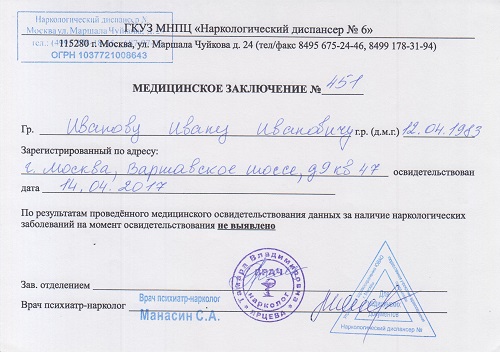 Наркологический диспансер
Москва ул. Маршала Чуйкова
ОГРН 1037721008643
ГКУЗ МНПЦ «Наркологический диспансер № 6»
115280 г. Москва, ул. Маршала Чуйкова д. 24 (тел/факс 8495 675-24-46, 8499 178-31-94)
МЕДИЦИНСКОЕ ЗАКЛЮЧЕНИЕ № 451
Гр. Иванову Ивану Ивановичу г.р. (д.м.г.) 12.04.1983
Зарегистрированный по адресу:
г. Москва, Варшавское шоссе, д9 кв 47 освидетельствован
дата 14.04.2017
По результатам проведённого медицинского освидетельствования данных за наличие наркологических
заболеваний на момент освидетельствования не выявлено
Зав. отделением
Татьяна Владимировна ЯРЦЕВА
ВРАЧ
нарколог
Врач психиатр-нарколог
Врач психиатр-нарколог
Манасин С.А.
Для
документов
Наркологический диспансер №